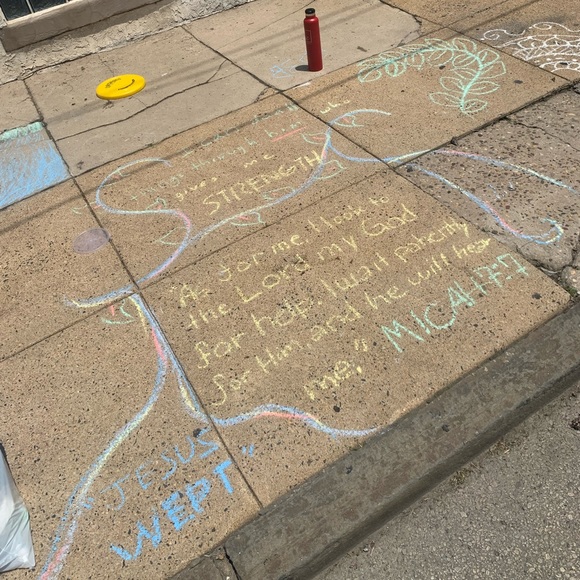 things through him who
gives me
STRENGTH
"As for me, I look to
the Lord my God
for help. I wait patiently
for Him, and he will hear
me,"
MICAH 7:7
"JESUS
WEPT"